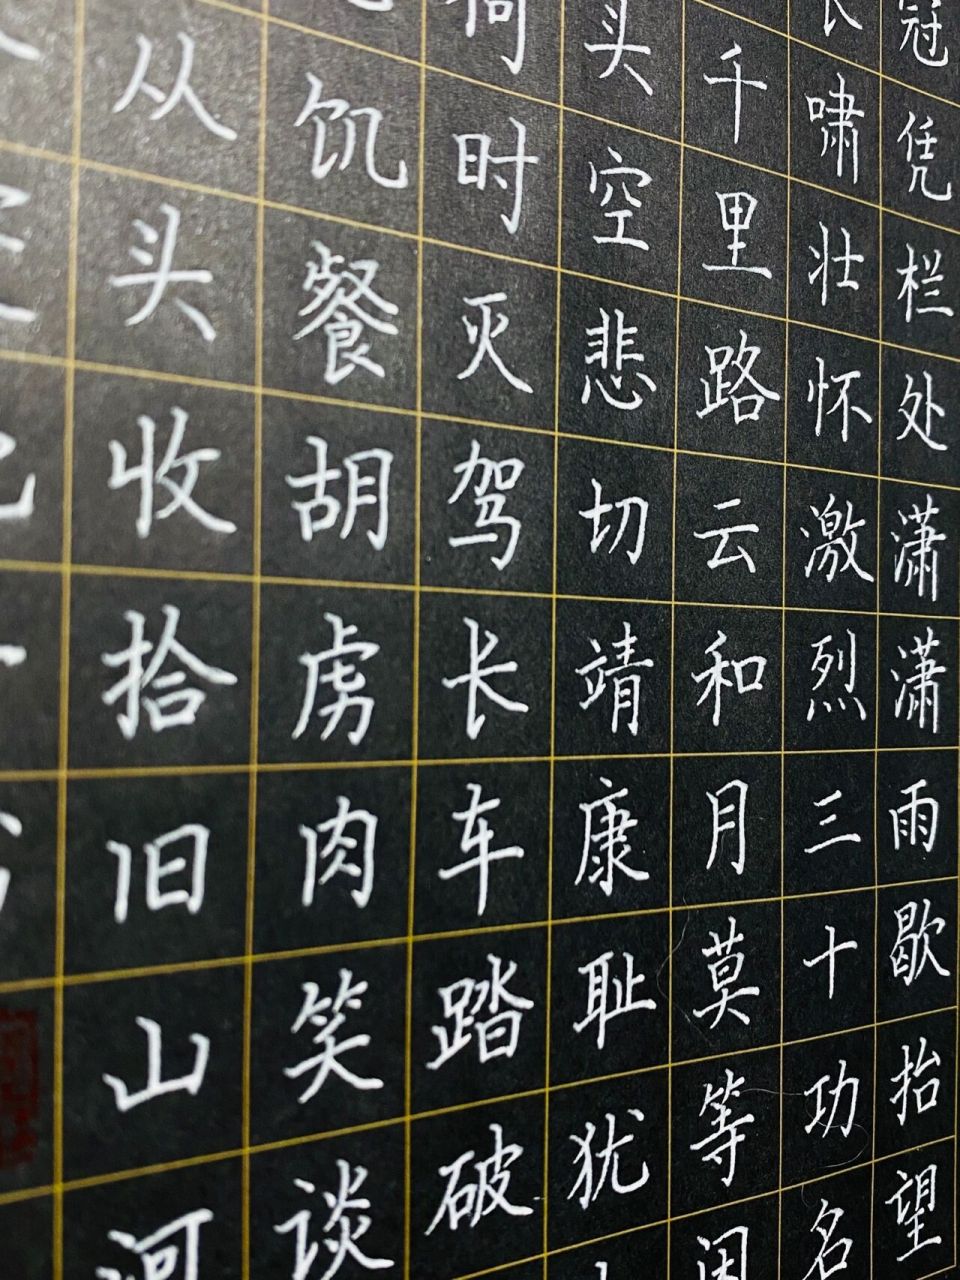 冠凭栏处潇潇雨歇抬望
长啸壮怀激烈三十功名
千里路云和月莫等闲
头空悲切靖康耻犹
何时灭驾长车踏破
饥餐胡虏肉笑谈
从头收拾旧山河